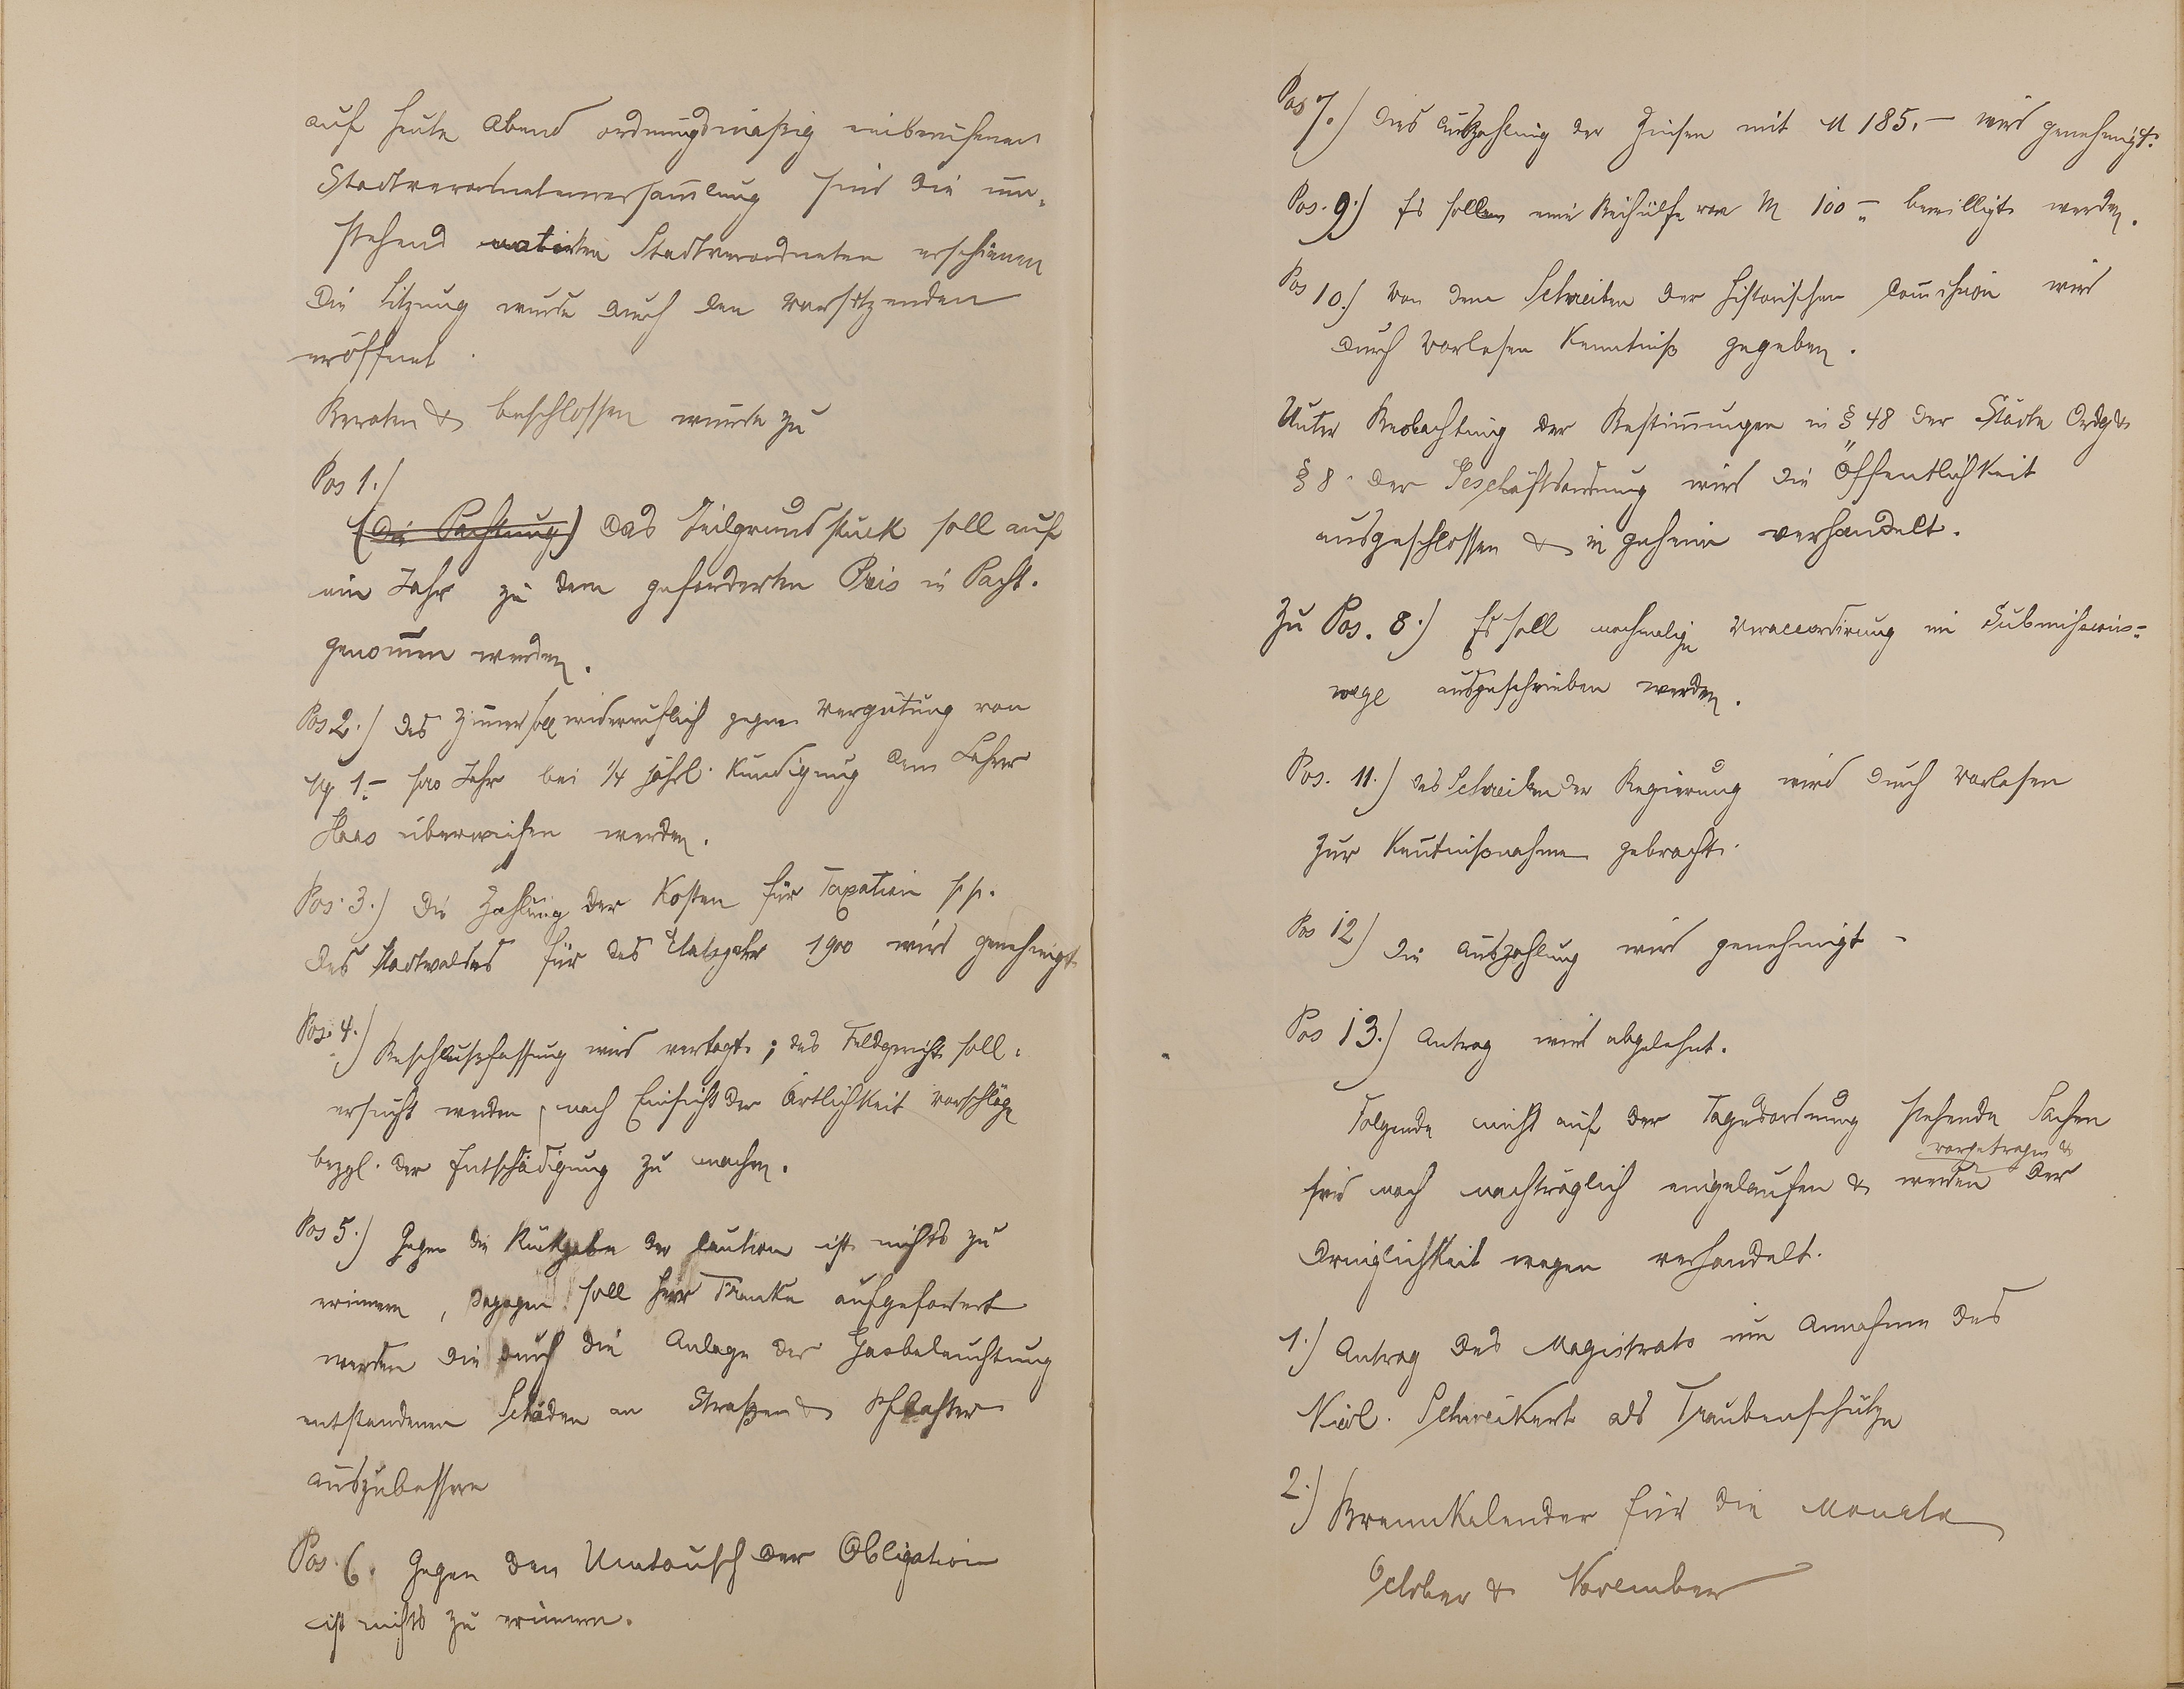 auf heute Abend ordnungsmäßig einberufenen
Stadtverordnetenversam̄lung sind die um-
stehend notirten Stadtverordneten erschienen
Die Sitzung wurde durch den Vorsitzenden
eröffnet.
Beraten & beschlossen wurde zu
Pos 1.)
(Die Pachtung) Das Teilgrundstück soll auf
ein Jahr zu dem geforderten Preis in Pacht.
genom̄en werden.
Pos. 2.) Das Zim̄er soll widerruflich gegen Vergütung von
M 1.- pro Jahr bei 1/4 jährl. Kündigung dem Lehrer
Haas überwiesen werden.
Pos. 3.) Die Zahlung der Kosten für Taxation pp.
des Stadtwaldes für das Etatsjahr 1900 wird genehmigt
Pos. 4.) Beschlußfassung wird vertagt; das Feldgericht soll
ersucht werden, nach Einsicht der Örtlichkeit Vorschläge
bezgl. der Entschädigung zu machen.
Pos 5.) Gegen die Rückgabe der Caution ist nichts zu
erinnern, dagegen soll Herr Franke aufgefordert
werden die durch die Anlage der Gasbeleuchtung
entstandenen Schäden an Straßen & Pflaster
auszubessern
Pos. 6. Gegen den Umtausch der Obligation
ist nichts zu erinnern.
Pos 7.) Die Auszahlung der Zinsen mit M 185.- wird genehmigt.
Pos. 9.) Es sollen eine Beihülfe von M 100.- bewilligt werden.
Pos 10.) Von dem Schreiben der historischen Com̄ission wird
durch Vorlesen Kenntniß gegeben.
Unter Beobachtung der Bestim̄ungen in § 48 der Städte Ordg &
§ 8. der Geschäftsordnung wird die Öffentlichkeit
ausgeschlossen & in geheim verhandelt.
Zu Pos. 8.) Es soll nochmalige Veraccordirung im Submissions-
wege ausgeschrieben werden.
Pos. 11.) Das Schreiben der Regierung wird durch Vorlesen
zur Kentnißnahme gebracht.
Pos 12) Die Auszahlung wird genehmigt -
Pos 13.) Antrag wird abgelehnt.
Folgende nicht auf der Tagesordnung stehende Sachen
vorgetragen &
sind noch nachträglich eingelaufen & werden der
Dringlichkeit wegen verhandelt.
1.) Antrag des Magistrats um Annahme des
Nicol. Schweikert als Traubenschütze
2.) Brennkalender für die Monate
October & November